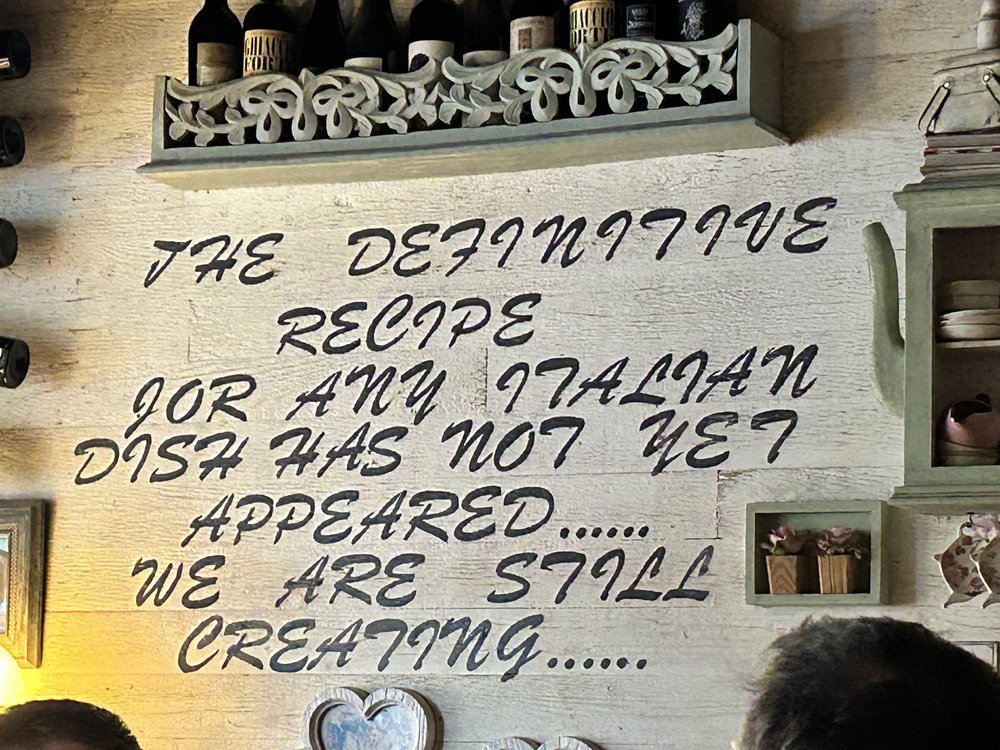 GHIACCIO
FORTE
GHIACCIO
FORTE
THE DEFINITIVE
RECIPE
FOR ANY ITALIAN
DISH HAS NOT YET
APPEARED......
WE ARE STILL
CREATING......